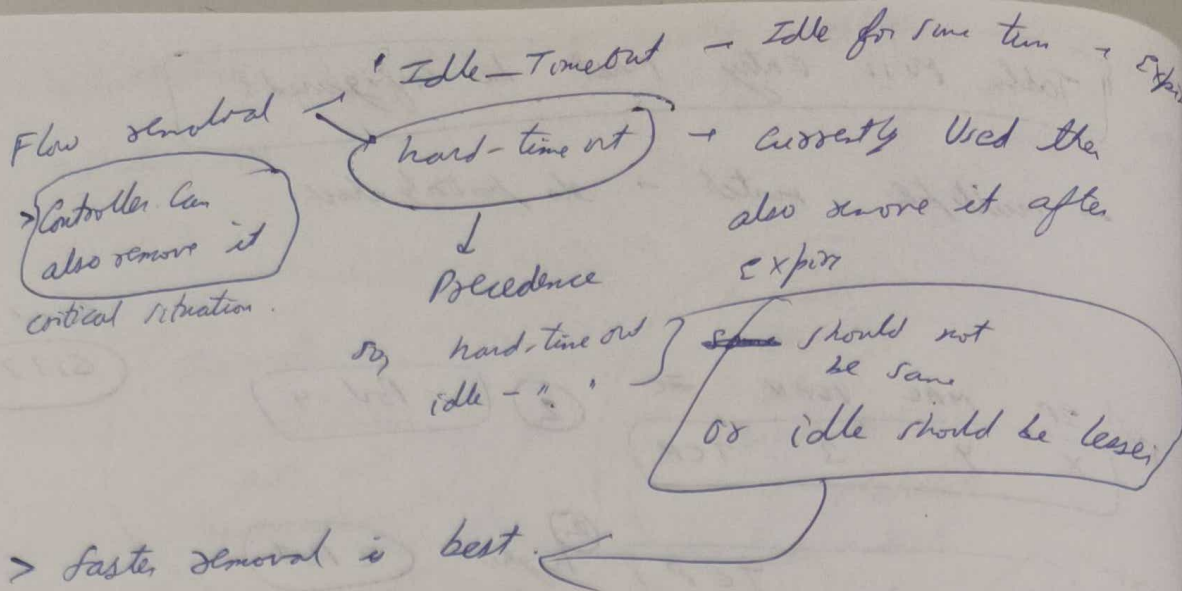 Idle_Timeout → Idle for some time →
Flow removal
hard-time out → currently Used then
also remove it after
expire
> Controller Can
also remove it
critical situation.
Precedence
so, hard-time out
idle - " "
should not
be same
or idle should be lesser
> faster removal is best.